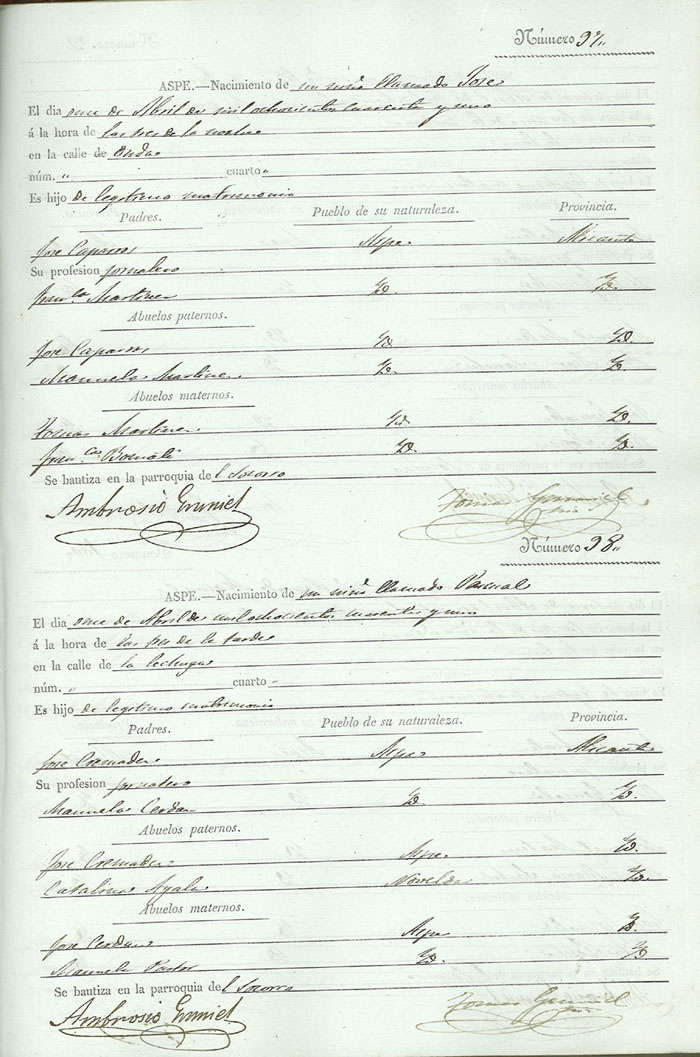 Número 97„
ASPE.—Nacimiento de un niño llamado Jose
El dia once de Abril de mil ochocientos cuarenta y uno
á la hora de las tres de la noche
en la calle de Ondas
núm. „ cuarto „
Es hijo de legitimo matrimonio
Padres. Pueblo de su naturaleza. Provincia.
Jose Caparros Aspe Alicante
Su profesion jornalero
Franca Martinez Yd. Yd.
Abuelos paternos.
Jose Caparros Yd. Yd.
Manuela Martinez Yd. Yd.
Abuelos maternos.
Tomas Martinez Yd. Yd.
Franca Yd. Yd.
Se bautiza en la parroquia del Socorro
Ambrosio Tomas
Número 98„
ASPE.—Nacimiento de un niño llamado Pascual
El dia once de Abril de mil ochocientos cuarenta y uno
á la hora de las tres de la tarde
en la calle de la lechuga
núm. „ cuarto „
Es hijo de legitimo matrimonio
Padres. Pueblo de su naturaleza. Provincia.
Jose Cremades Aspe Alicante
Su profesion jornalero
Manuela Cerdan Yd. Yd.
Abuelos paternos.
Jose Cremades Aspe Yd.
Catalina Ayala Novelda Yd.
Abuelos maternos.
Jose Cerdan Aspe Yd.
Manuela Pastor Yd. Yd.
Se bautiza en la parroquia del Socorro
Ambrosio Tomas